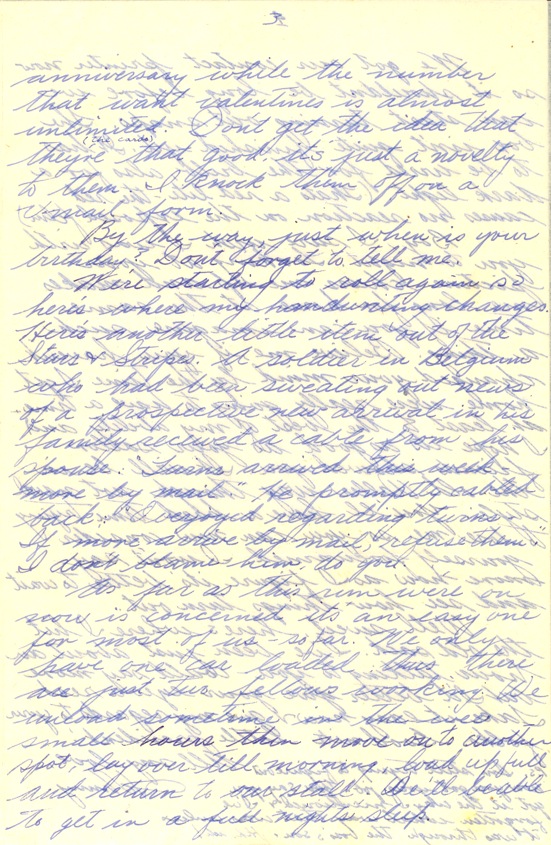 3
anniversary while the number
that want valentines is almost
unlimited. Don't get the idea that
(the cards)
they're that good it's just a novelty
to them. I knock them off on a
V-mail form.
By the way, just when is your
birthday? Don't forget to tell me.
We're starting to roll again so
here's where my handwriting changes.
Here's another little item out of the
Stars & Stripes. A soldier in Belgium
who had been sweating out news
of a prospective new arrival in his
family received a cable from his
spouse. "Twins arrived this week
more by mail." He promptly cabled
back: "Overjoyed regarding twins.
If more arrive by mail, refuse them."
I don't blame him, do you.
As far as this run were on
now is concerned its an easy one
for most of us - so far. We only
have one car loaded thus there
are just two fellows working. We
unload sometime in the wee
small hours then move on to another
spot, lay over till morning, load up full
and return to our stall. We'll be able
to get in a full nights sleep.